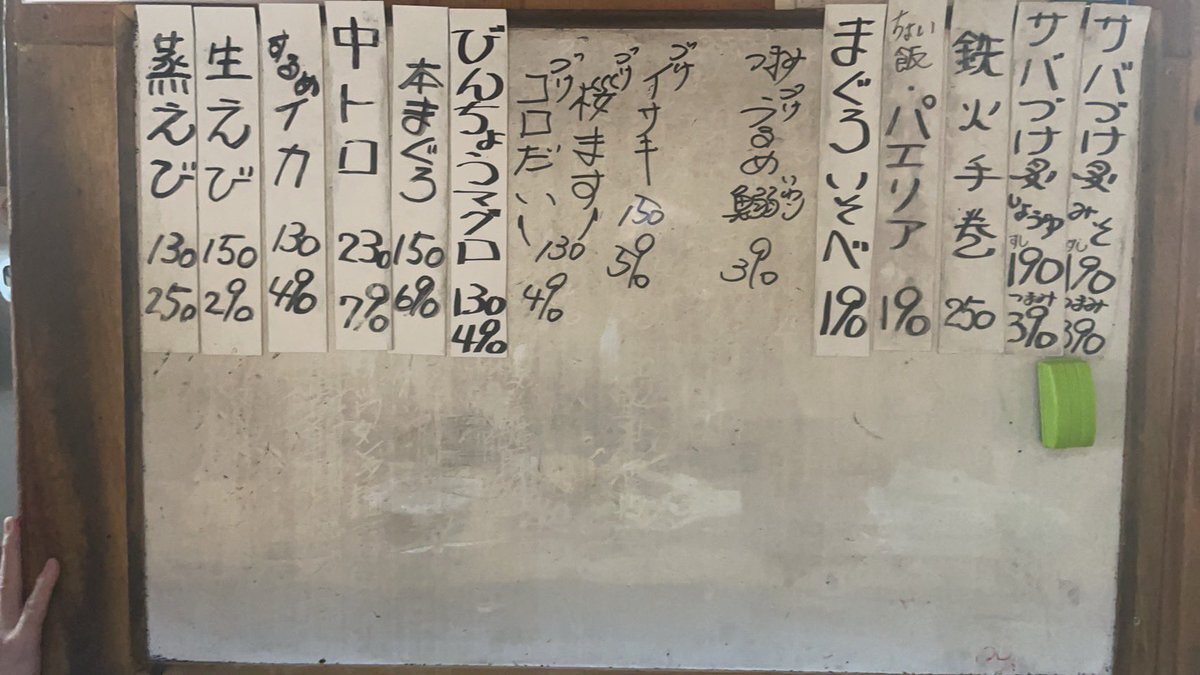 サバづけ炙 みそ すし 190 つまみ 390
サバづけ炙 しょうゆ すし 190 つまみ 390
鉄火手巻 250
ちょい飯・パエリア 190
まぐろいそべ 190
つまみ づけ うるめ鰯 いわし 390
づけ イサキ 150 590
づけ 桜ます 130
づけ ゴロだい 490
びんちょうマグロ 130 490
本まぐろ 150 690
中トロ 230 790
するめイカ 130 490
生えび 150 290
蒸えび 130 250